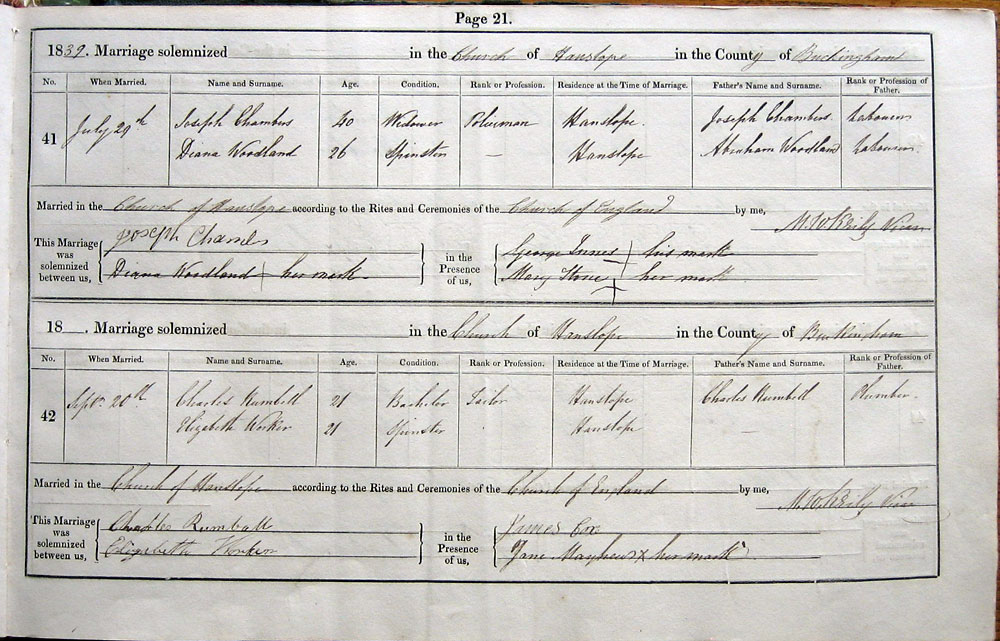 Page 21.
1839. Marriage solemnized in the Church of Hanslope in the County of Buckingham
No. When Married. Name and Surname. Age. Condition. Rank or Profession. Residence at the Time of Marriage. Father's Name and Surname. Rank or Profession of Father.
41 July 29th Joseph Chambers 40 Widower Policeman Hanslope. Joseph Chambers. Labourer
Diana Woodland 26 Spinster — Hanslope Abraham Woodland Labourer
Married in the Church of Hanslope according to the Rites and Ceremonies of the Church of England by me, Vicar
This Marriage was solemnized between us, Joseph in the Presence of us, George Innes his mark
Diana Woodland her mark Mary Stone her mark
18 . Marriage solemnized in the Church of Hanslope in the County of Buckingham
No. When Married. Name and Surname. Age. Condition. Rank or Profession. Residence at the Time of Marriage. Father's Name and Surname. Rank or Profession of Father.
42 Sept. 20th Charles Rumbell 21 Bachelor Tailor Hanslope Charles Rumbell Plumber.
Elizabeth Worker 21 Spinster Hanslope —
Married in the Church of Hanslope according to the Rites and Ceremonies of the Church of England by me, Vicar
This Marriage was solemnized between us, Charles Rumball in the Presence of us, James Cox
Elizabeth Worker Jane Mayhew x her mark